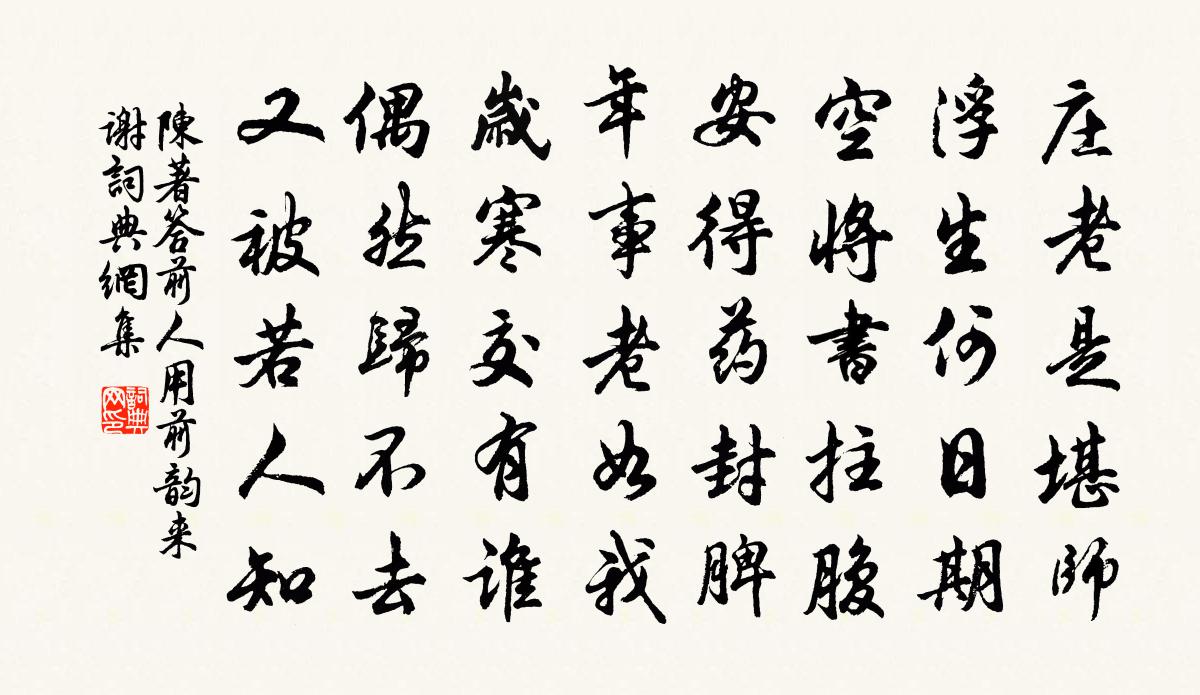 庄老是堪師
浮生何日期
空將書拄腹
安得药封脾
年事老如我
歲寒交有誰
偶然歸不去
又被若人知
陳著答前人用前韵来
謝詞典網集
詞典
网印